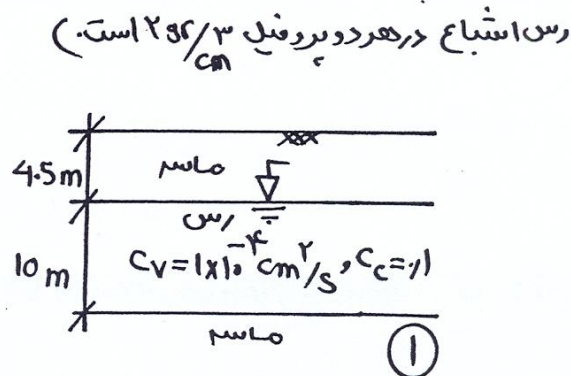 رس اشباع در هر دو پروفیل ۲gr/cm³ است.)
4.5m
ماسه
رس
10m
Cv=1×10⁻⁴ cm²/s , Cc=۰/۱
ماسه
①